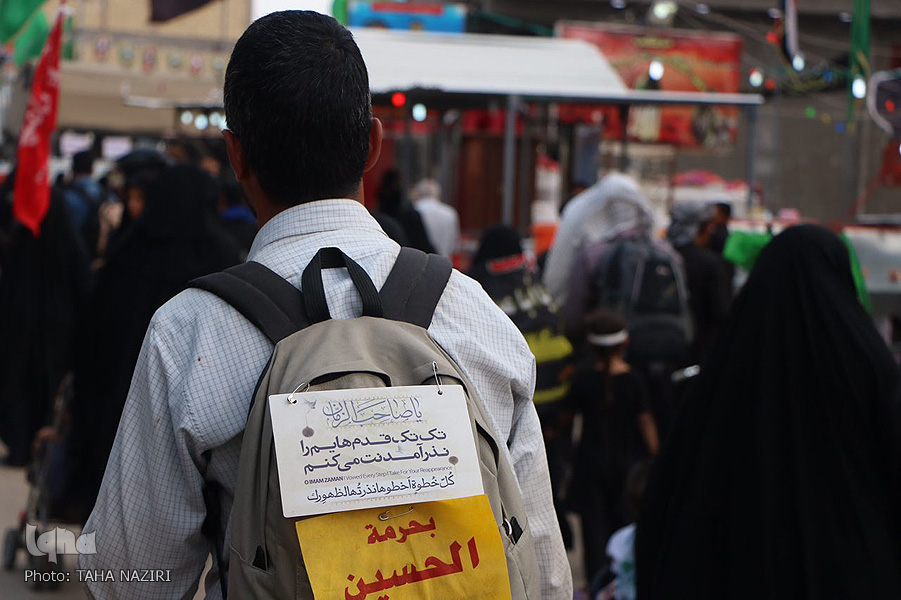 یا صاحب الزمان
تک تک قدم هایم را
نذر آمدنت می‌کنم
O IMAM ZAMAN I Vowed Every Step I Take For Your Reappearance
کُلّ خُطوة أخطوها نذرتُها لظهورك
بحرمة
الحسين
iqna
Photo: TAHA NAZIRI